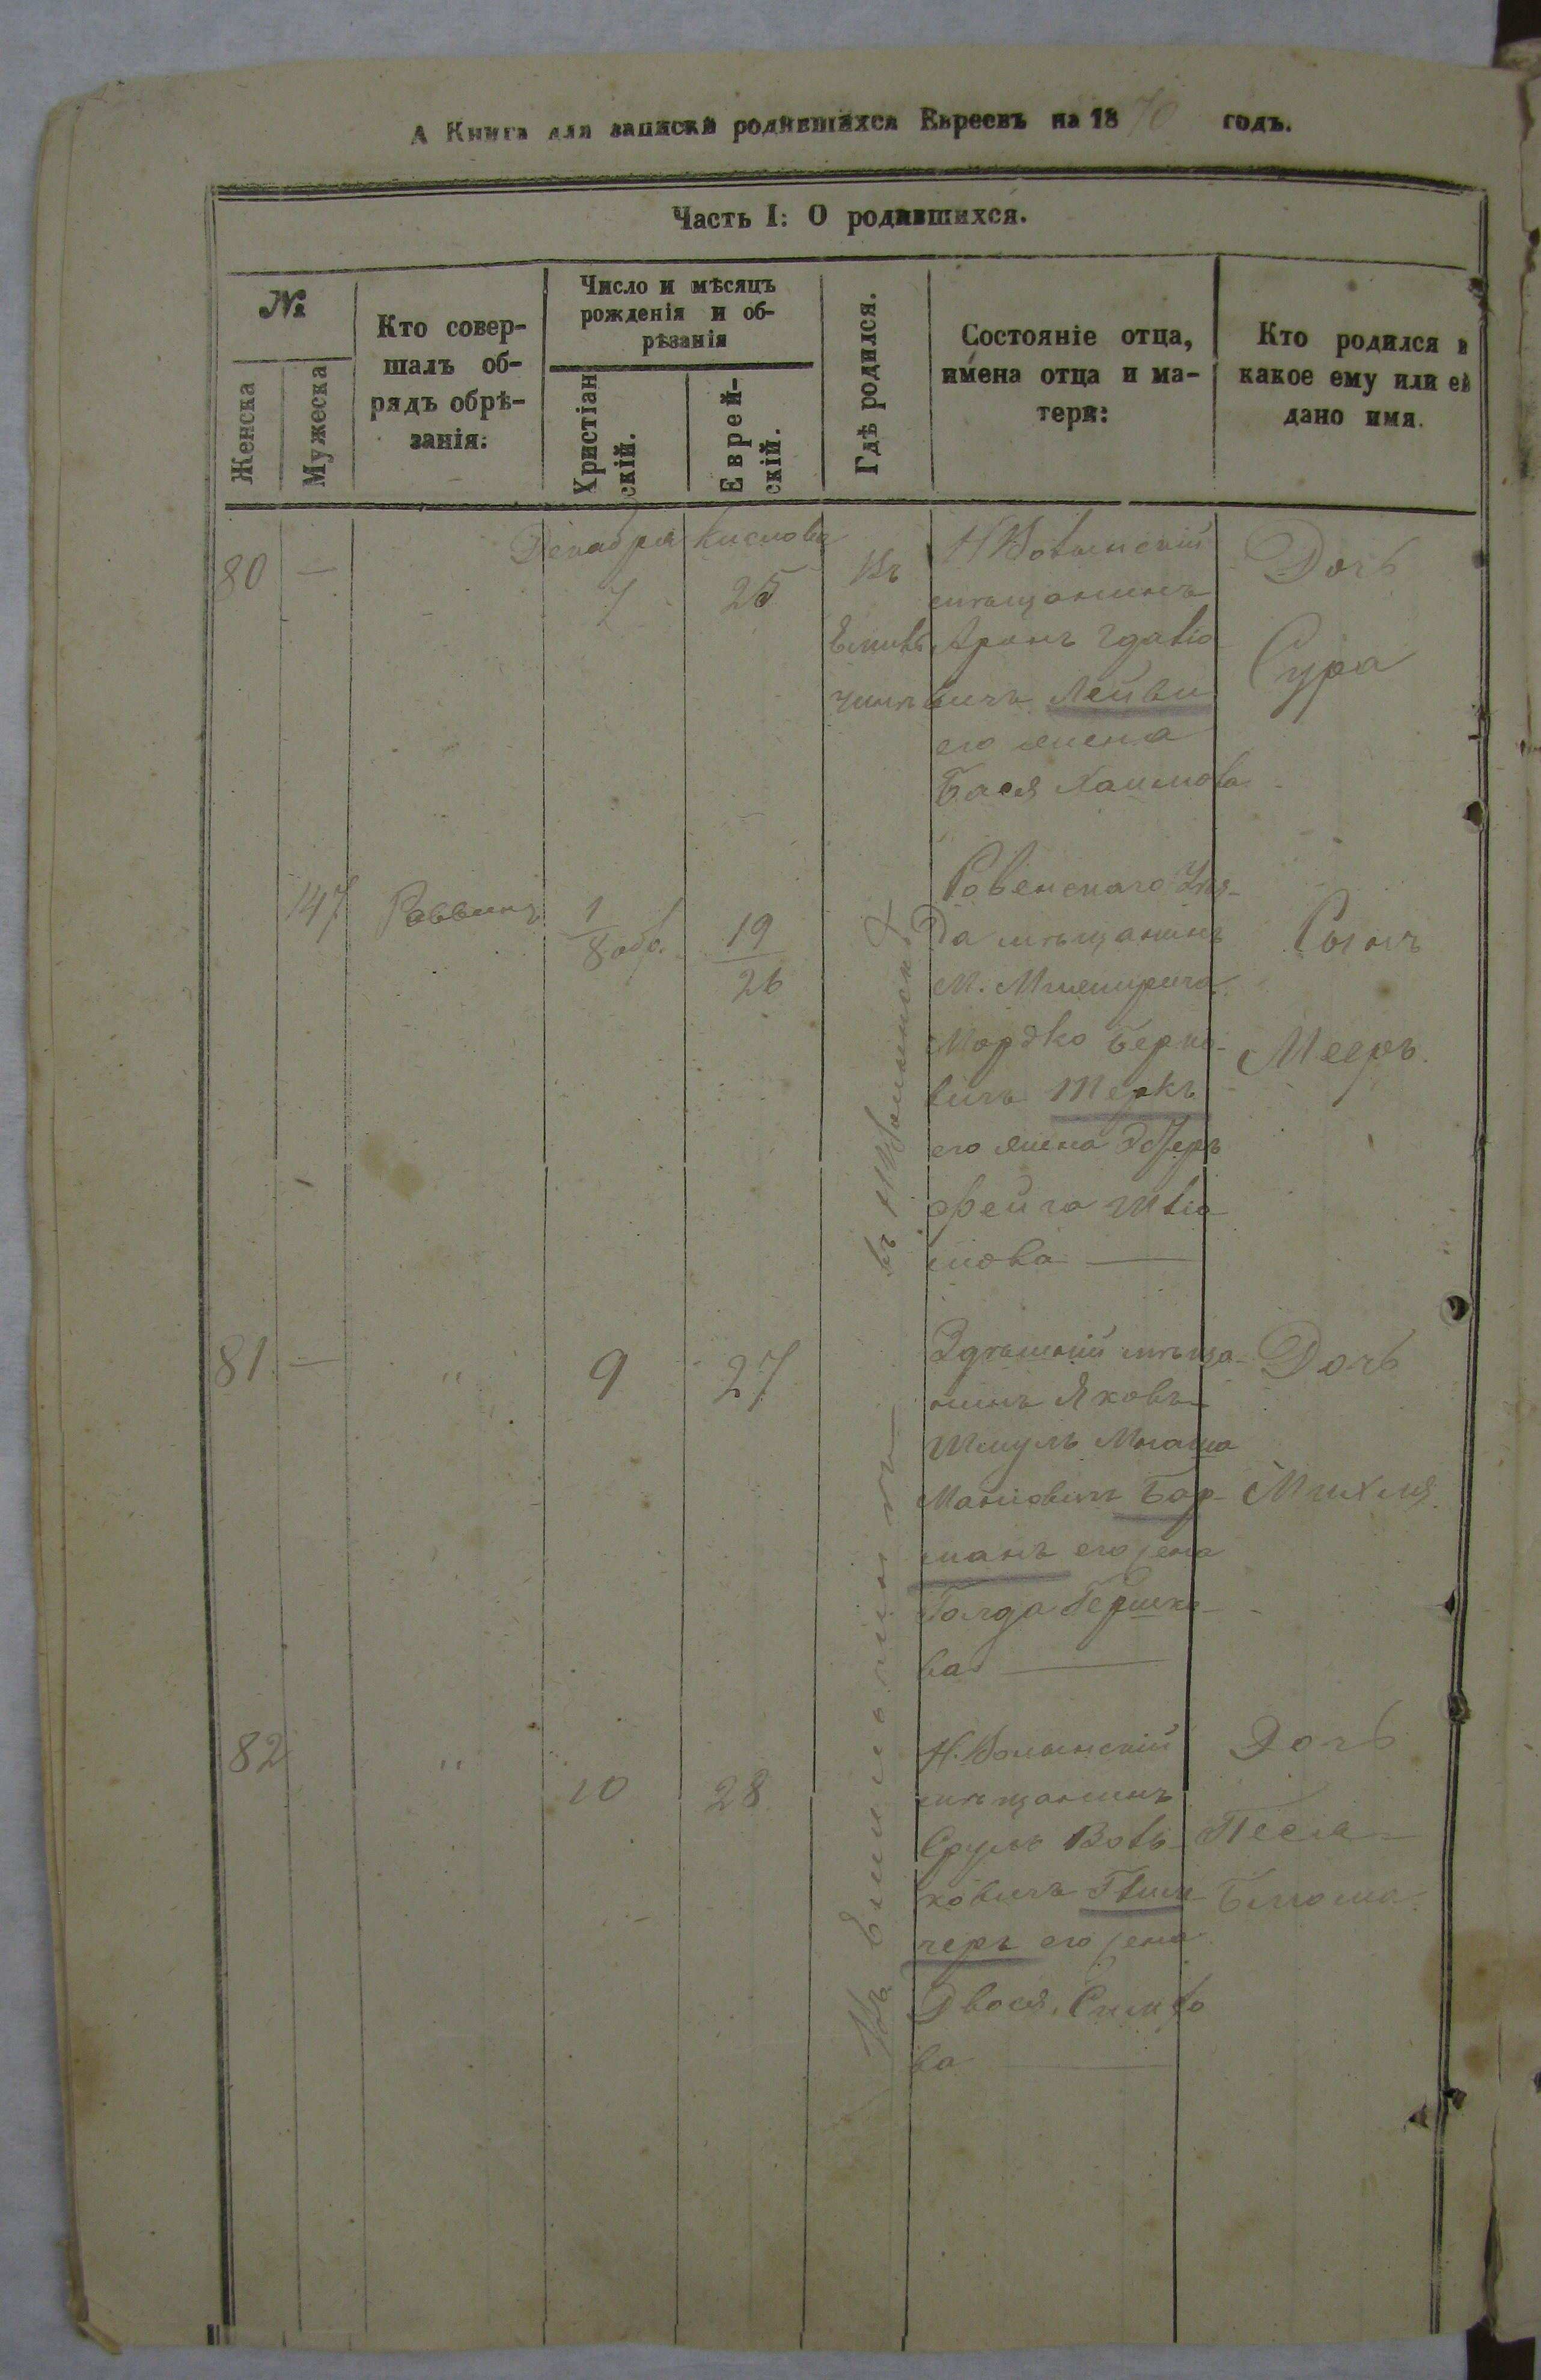 А Книга для записки родившихся Евреевъ на 1870 годъ.
Часть I: О родившихся.
№
Женска
Мужеска
Кто совер-
шалъ об-
рядъ обрѣ-
занія:
Число и мѣсяцъ
рожденія и об-
рѣзанія
Христіан
скій.
Еврей-
скій.
Гдѣ родился.
Состояніе отца,
имена отца и ма-
тери:
Кто родился и
какое ему или ей
дано имя.
80 —
Декабря
7
Кислова
25
Въ
Н Волынскій
мѣщанинъ
Аронъ
вичъ Лейви
его жена
Бася Хаимова
Дочь
Сура
147
Раввинъ
1
8 обр.
19
26
въ НВолынскѣ
Ровенскаго Уѣз-
да мѣщанинъ
М. Межирича
Мордко Берко-
вичъ Теркъ
его жена Эстеръ
Фейга
мова —
Сынъ
Мееръ.
81 —
"
9
27
Здѣшній мѣща-
нинъ Яковъ-
Шмуль
Маніовичъ Бар-
манъ его жена
Голда Гершко-
ва —
Дочь
Михля
82
"
10
28
Въ
Н. Волынскій
мѣщанинъ
Сруль Воль-
ковичъ
черъ его жена
Двося
ва —
Дочь
Песя-
Блюма.